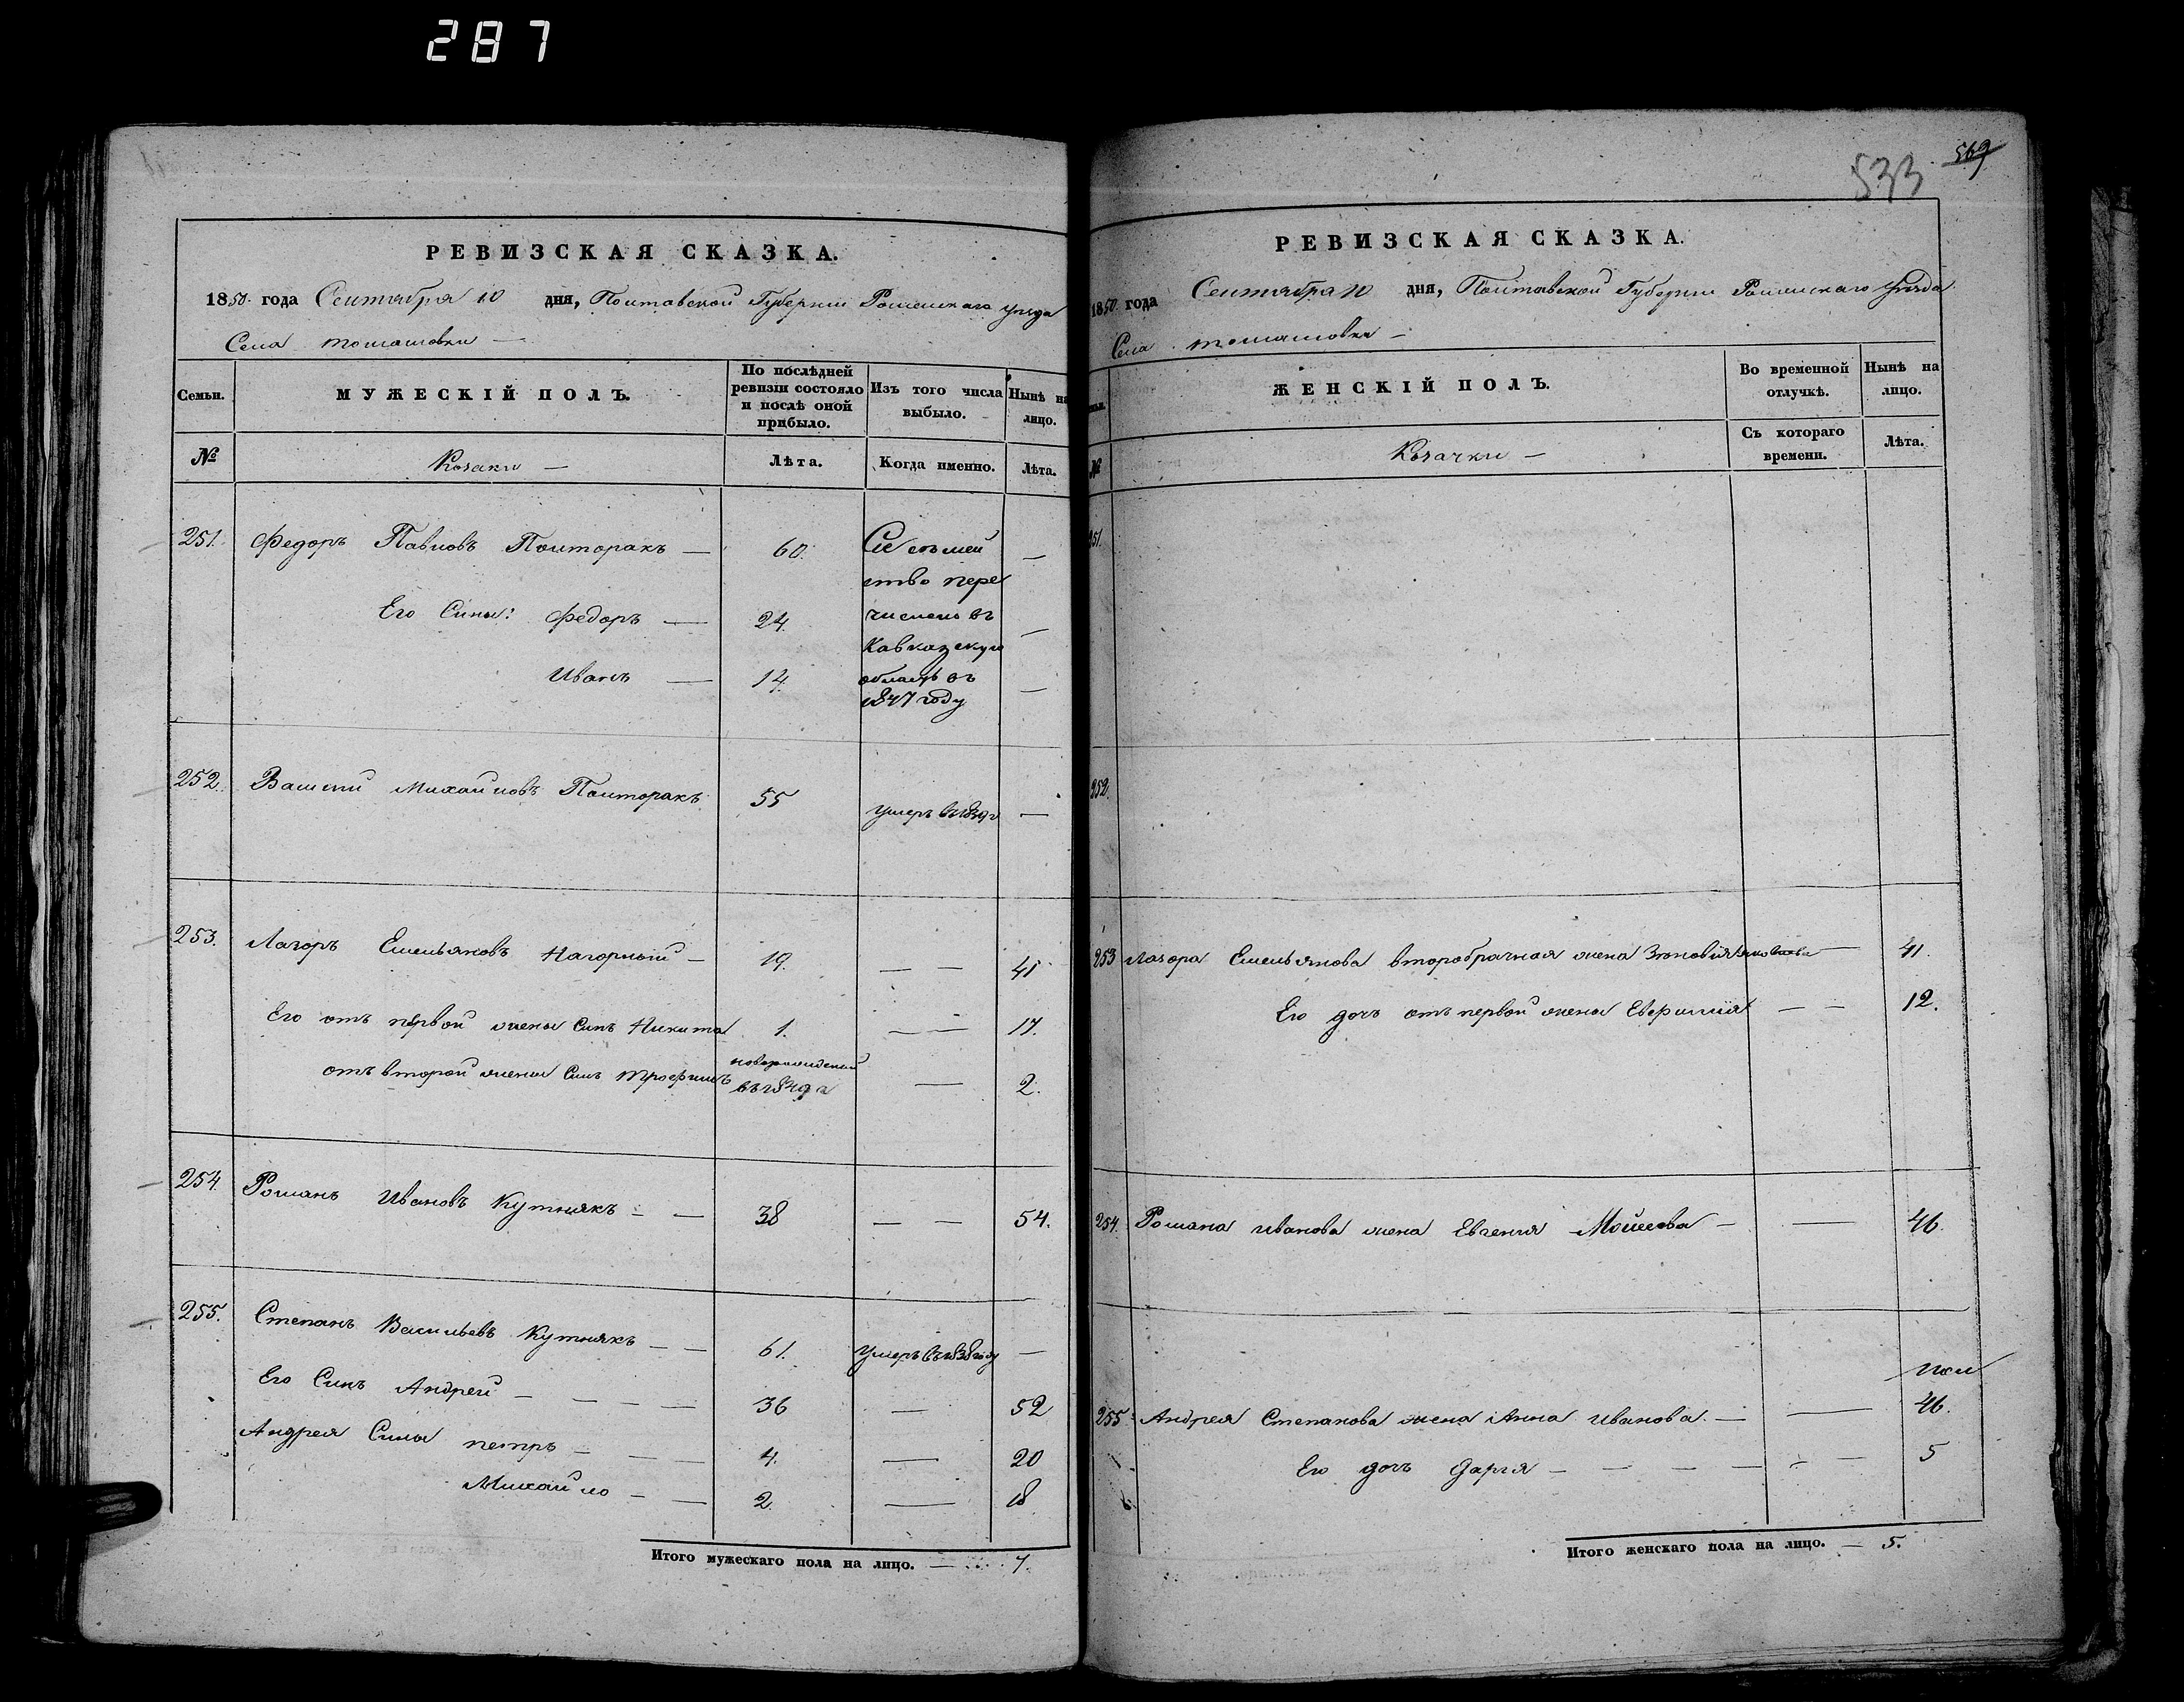 287
РЕВИЗСКАЯ СКАЗКА.
1850 года Сентября 10 дня, Полтавской Губернии Роменскаго уезда
Села Томашовки —
Семьи. МУЖЕСКІЙ ПОЛЪ. По послѣдней ревизіи состояло и послѣ оной прибыло. Изъ того числа выбыло. Нынѣ на лицо.
№ Козаки — Лѣта. Когда именно. Лѣта.
251. Федоръ Павловъ Полторакъ — 60. Сие семей —
ство пере
Его Сины: Федоръ — 24. числено въ —
Кавказскую
Иванъ — 14. область въ —
1847 году
252. Василий Михайловъ Полторакъ 55 умеръ въ —
253. Лазоръ Емельяновъ Нагорный — 19. — — 41
Его отъ первой жены Синъ Никита 1. — — 17.
отъ второй жены Синъ Трофимъ новорожденый — 2.
254. Романъ Ивановъ Кутнякъ — — 38 — — 54.
255. Степанъ Васильевъ Кутнякъ — — 61. Умеръ въ 1838 году —
Его Синъ Андрей — — — — 36 — 52
Андрея Сины петръ — — — 4. — 20
Михайло — — 2. — 18
Итого мужескаго пола на лицо. — 7.
533 569
РЕВИЗСКАЯ СКАЗКА.
1850 года Сентября 10 дня, Полтавской Губернии Роменскаго уезда
Села Томашовки —
ЖЕНСКІЙ ПОЛЪ. Во временной отлучкѣ. Нынѣ на лицо.
№ Козачки — Съ котораго времени. Лѣта.
251.
252.
253 Лазора Емельянова второбрачная жена Зѣновия Яковлева — 41.
Его дочь отъ первой жены Евфимия — — 12.
254. Романа Иванова жена Евгения Мойсеова — — 46.
255. Андрея Степанова жена Анна Иванова. — — 46.
Его дочь Дария — — — — — — 5
Итого женскаго пола на лицо. — 5.